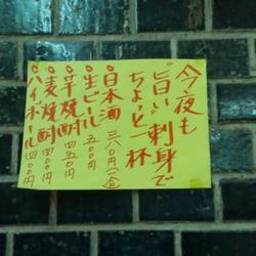 今夜も
旨い刺身で
ちょっと一杯
日本酒 三八〇円(一合)
生ビール 五〇〇円
芋焼酎 四五〇円
麦焼酎 四〇〇円
ハイボール 四〇〇円